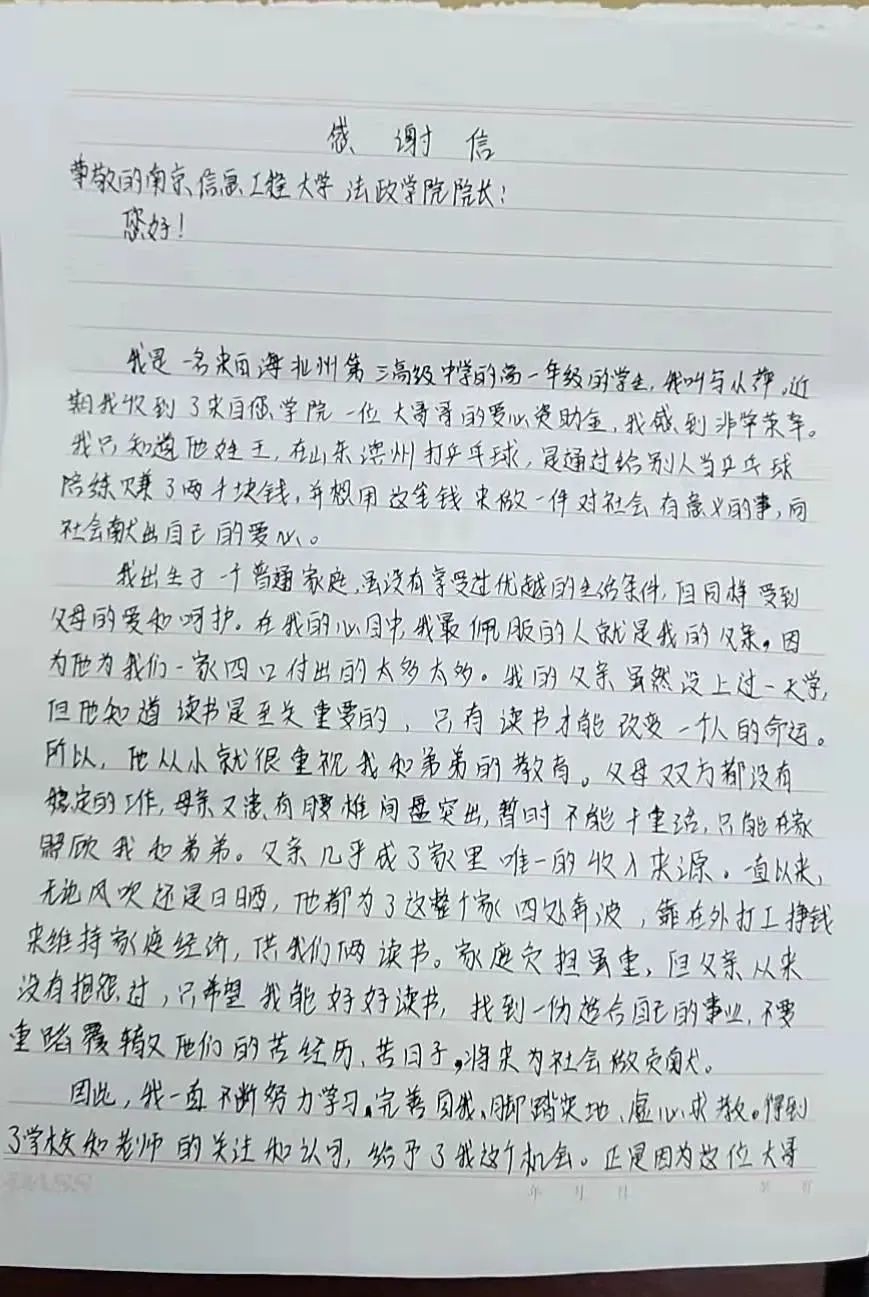 感谢信
尊敬的南京信息工程大学法政学院院长：
您好！
我是一名来自海北州第三高级中学的高一年级的学生，我叫马从萍。近
期我收到了来自您学院一位大哥哥的爱心资助金，我感到非常荣幸。
我只知道他姓王，在山东滨州打乒乓球，是通过给别人当乒乓球
陪练赚了两千块钱，并想用这笔钱来做一件对社会有意义的事，向
社会献出自己的爱心。
我出生于一个普通家庭，虽没有享受过优越的生活条件，但同样受到
父母的爱和呵护。在我的心目中，我最佩服的人就是我的父亲，因
为他为我们一家四口付出的太多太多。我的父亲虽然没上过一天学，
但他知道读书是至关重要的，只有读书才能改变一个人的命运。
所以，他从小就很重视我和弟弟的教育。父母双方都没有
稳定的工作，母亲又患有腰椎间盘突出，暂时不能干重活，只能在家
照顾我和弟弟。父亲几乎成了家里唯一的收入来源。一直以来，
无论风吹还是日晒，他都为了这整个家四处奔波，靠在外打工挣钱
来维持家庭经济，供我们俩读书。家庭负担虽重，但父亲从来
没有抱怨过，只希望我能好好读书，找到一份适合自己的事业，不要
重蹈覆辙又他们的苦经历、苦日子，将来为社会做贡献。
因此，我一直不断努力学习，完善自我、脚踏实地、虚心求教。得到
了学校和老师的关注和认可，给予了我这个机会。正是因为这位大哥
年 月 日